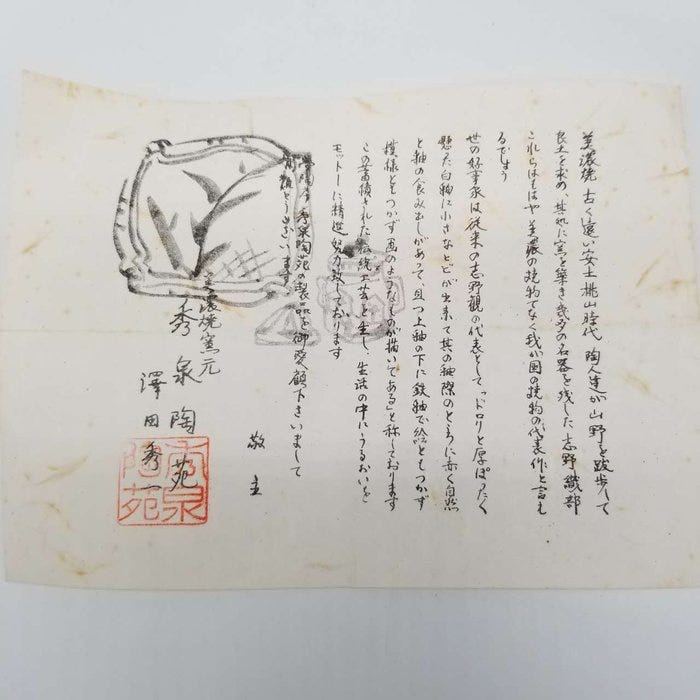 美濃焼 古く遠い安土桃山時代 陶人達が山野を跋歩して
良土を求め、其処に窯を築き幾多の名器を残した志野織部
これらはもはや美濃の焼物でなく我が国の焼物の代表作と言え
るでしょう
世の好事家は従来の志野観の代表をして「ドロリと厚ぼったく
懸った白釉に小さなヒビが出来て其の釉際のところに赤く自然
と釉の食み出しがあって、且つ上釉の下に鉄釉で絵ともつかず
模様ともつかず画のようなものが描いてある」と称しております
この蓄積された伝統工芸を生し、生活の中にうるおいを
モットーに精進努力致しております
秀泉陶苑の製品を御愛顧下さいまして
有難とうございます
敬主
美濃焼窯元
秀泉陶苑
澤田秀一
秀泉
陶苑